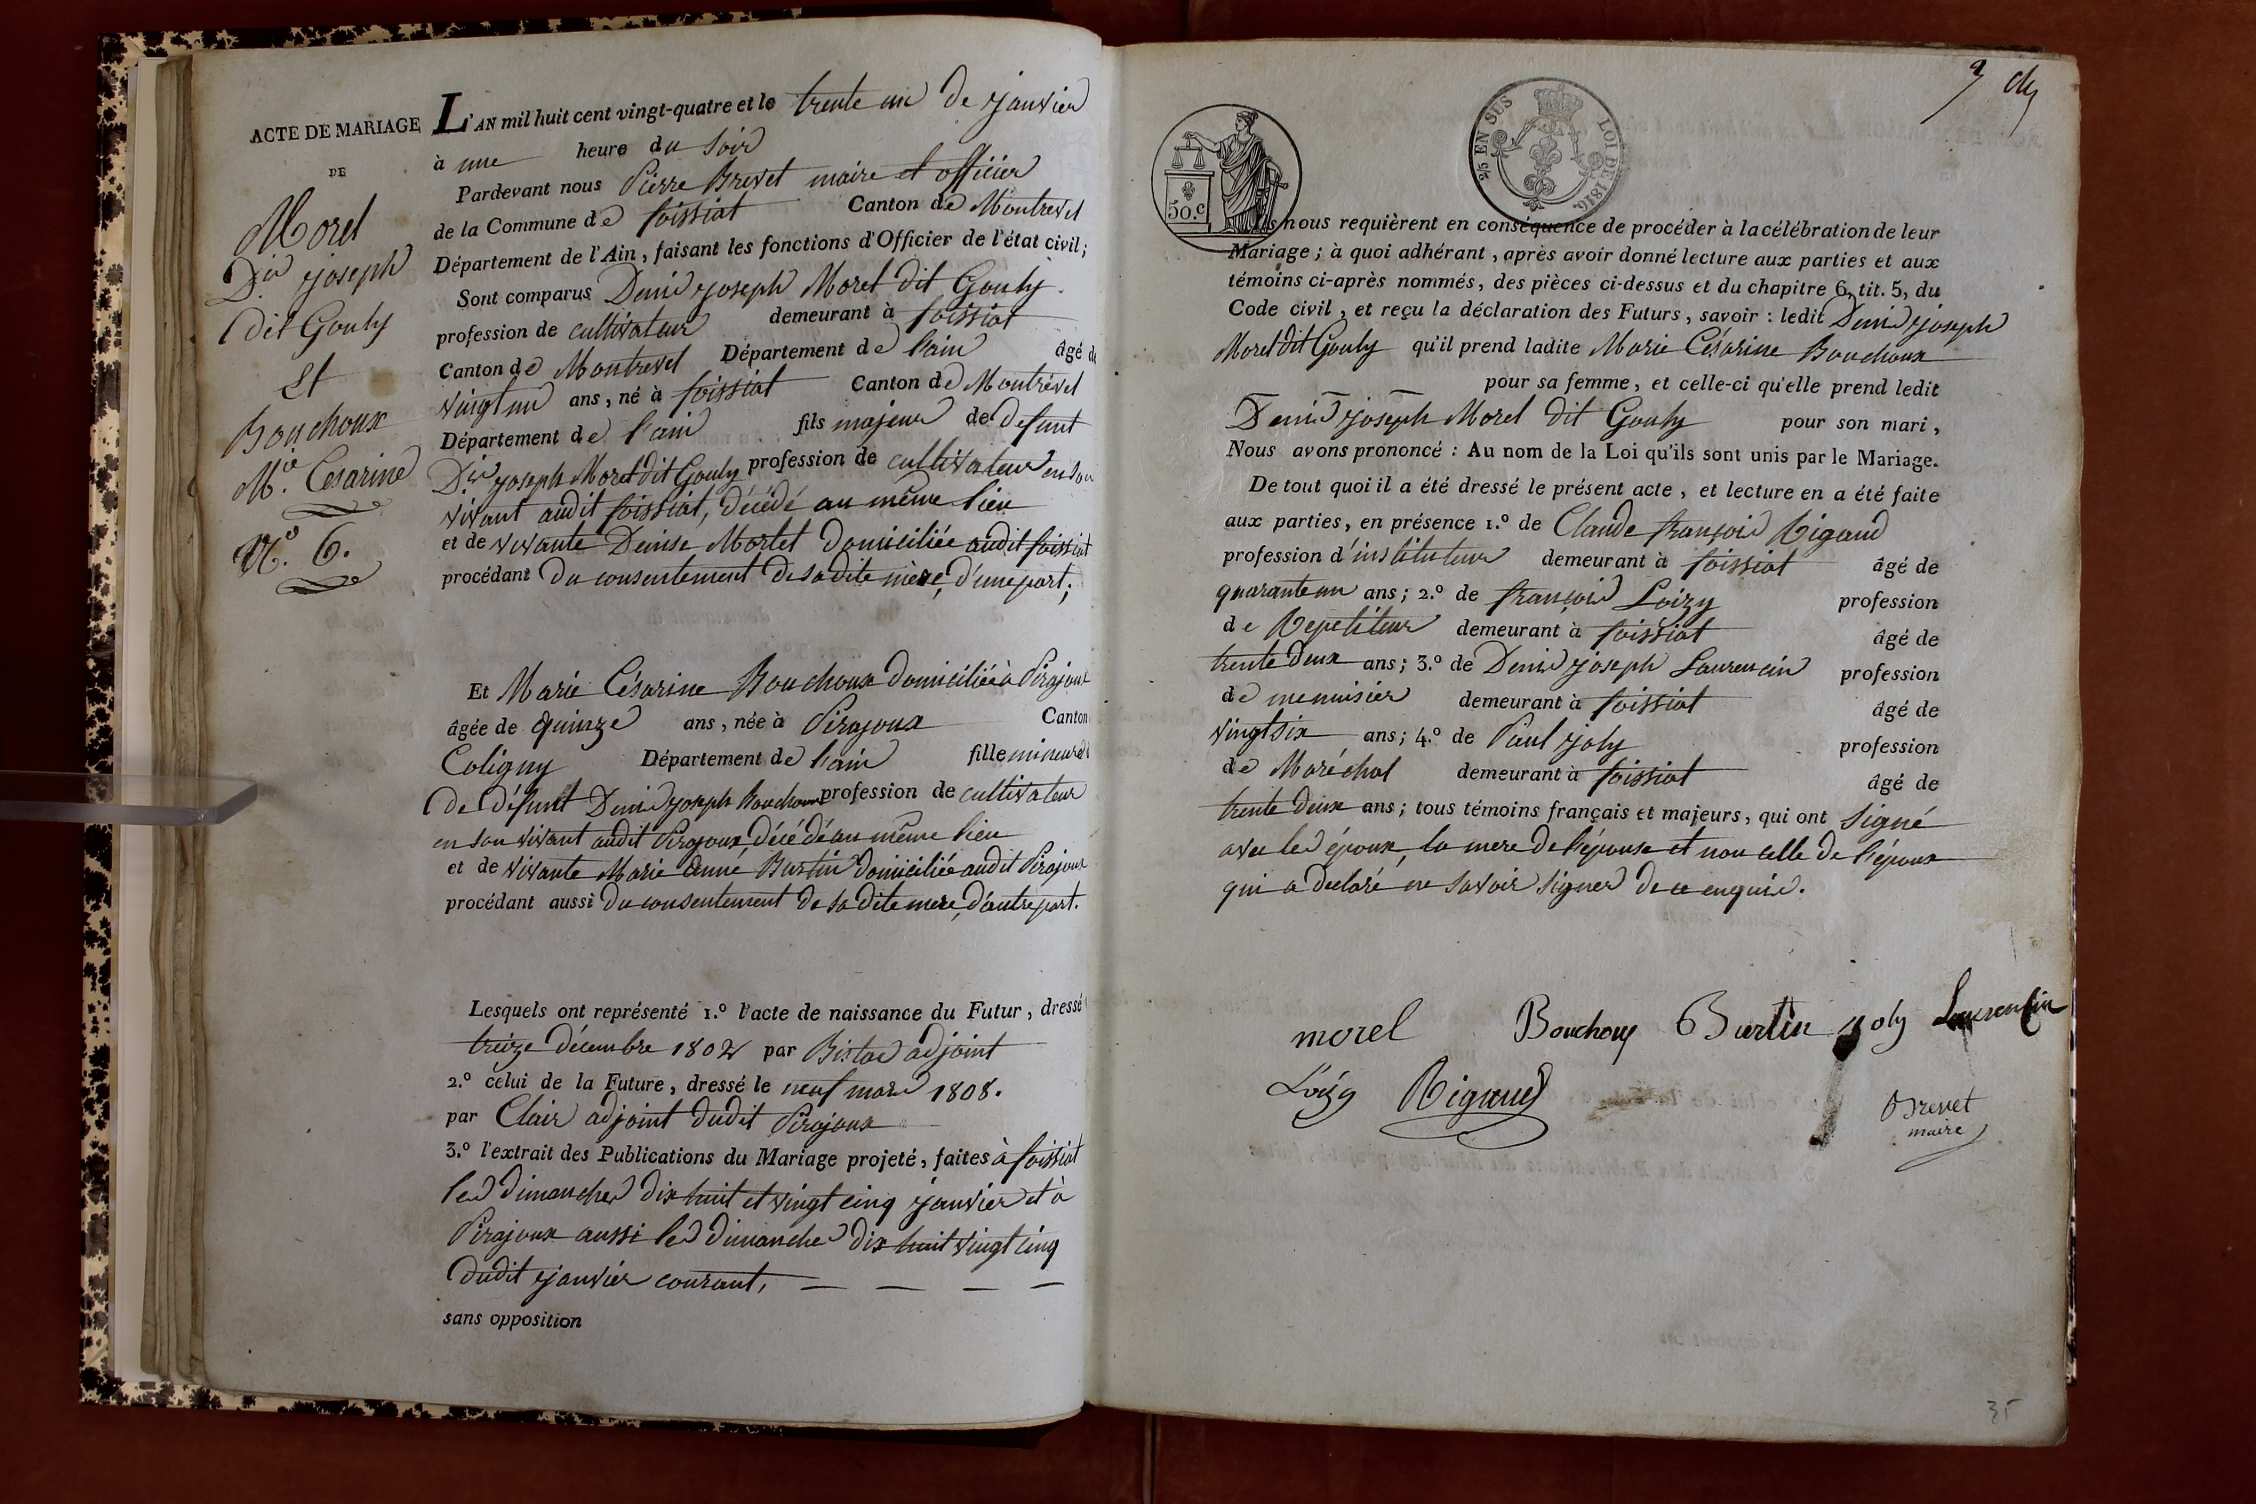 ACTE DE MARIAGE
DE
Morel
D.is joseph
dit Gouly
et
Bouchoux
M.ie Césarine
N.o 6.
L'AN mil huit cent vingt-quatre et le trente un de janvier
à une heure du soir
Pardevant nous Pierre Brevet maire et officier
de la Commune de foissiat Canton de Montrevel
Département de l'Ain, faisant les fonctions d'Officier de l'état civil;
Sont comparus Denis joseph Morel dit Gouly
profession de cultivateur demeurant à foissiat
Canton de Montrevel Département de l'ain âgé de
vingt un ans, né à foissiat Canton de Montrével
Département de l'ain fils majeur de défunt
D.is joseph Morel dit Gouly profession de cultivateur en son
vivant audit foissiat, décédé au même lieu
et de vivante Denise Mortel domiciliée audit foissiat
procédant du consentement de sadite mère, d'une part;
Et Marie Césarine Bouchoux domiciliée à Pirajoux
âgée de quinze ans, née à Pirajoux Canton
Coligny Département de l'ain fille mineure
de défunt Denis joseph Bouchoux profession de cultivateur
en son vivant audit Pirajoux, décédé au même lieu
et de vivante Marie anne Burtin domiciliée audit Pirajoux
procédant aussi du consentement de sadite mere, d'autre part.
Lesquels ont représenté 1.o l'acte de naissance du Futur, dressé
treize décembre 1802 par adjoint
2.o celui de la Future, dressé le neuf mars 1808.
par Clair adjoint dudit Pirajoux
3.o l'extrait des Publications du Mariage projeté, faites à foissiat
les dimanches dix huit et vingt cinq janvier et à
Pirajoux aussi les dimanches dix huit vingt cinq
dudit janvier courant, — — — —
sans opposition
2/5 EN SUS LOI DE 1816.
50.c
nous requièrent en conséquence de procéder à la célébration de leur
Mariage; à quoi adhérant, après avoir donné lecture aux parties et aux
témoins ci-après nommés, des pièces ci-dessus et du chapitre 6, tit. 5, du
Code civil, et reçu la déclaration des Futurs, savoir: ledit Denis joseph
Morel dit Gouly qu'il prend ladite Marie Césarine Bouchoux
pour sa femme, et celle-ci qu'elle prend ledit
Denis joseph Morel dit Gouly pour son mari,
Nous avons prononcé: Au nom de la Loi qu'ils sont unis par le Mariage.
De tout quoi il a été dressé le présent acte, et lecture en a été faite
aux parties, en présence 1.o de Claude françois Rigaud
profession d'instituteur demeurant à foissiat âgé de
quarante un ans; 2.o de françois Loizy profession
de Repetiteur demeurant à foissiat âgé de
trente deux ans; 3.o de Denis joseph Laurencin profession
de menuisier demeurant à foissiat âgé de
vingt six ans; 4.o de Paul joly profession
de Maréchal demeurant à foissiat âgé de
trente deux ans; tous témoins français et majeurs, qui ont signé
avec les époux, la mere de l'épouse et non celle de l'époux
qui a declaré ne savoir signer de ce enquise.
morel Bouchoux Burtin joly Laurencin
Loizy Rigaud
Brevet
maire
35